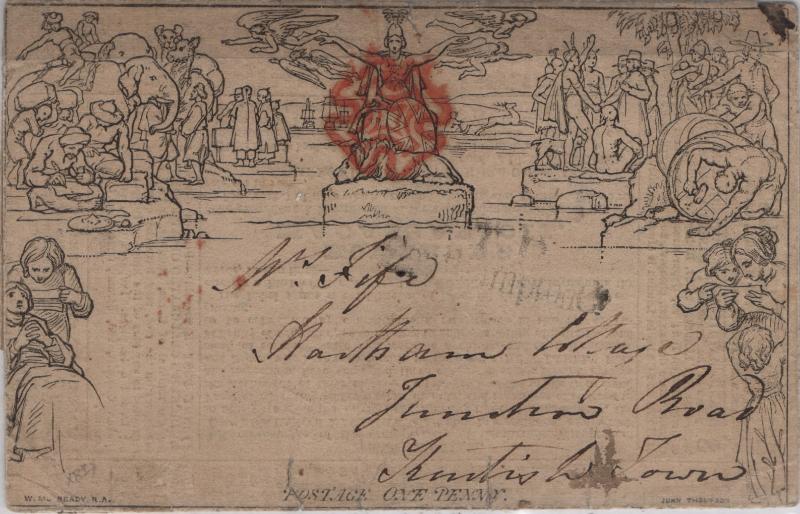 Mrs. Fife
Hartham Cottage
Junction Road
Kentish Town
POSTAGE ONE PENNY.
W. MULREADY, R.A.
JOHN THOMPSON